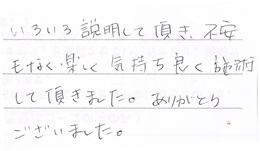 いろいろ説明して頂き、不安
もなく楽しく気持ち良く施術
して頂きました。ありがとう
ございました。